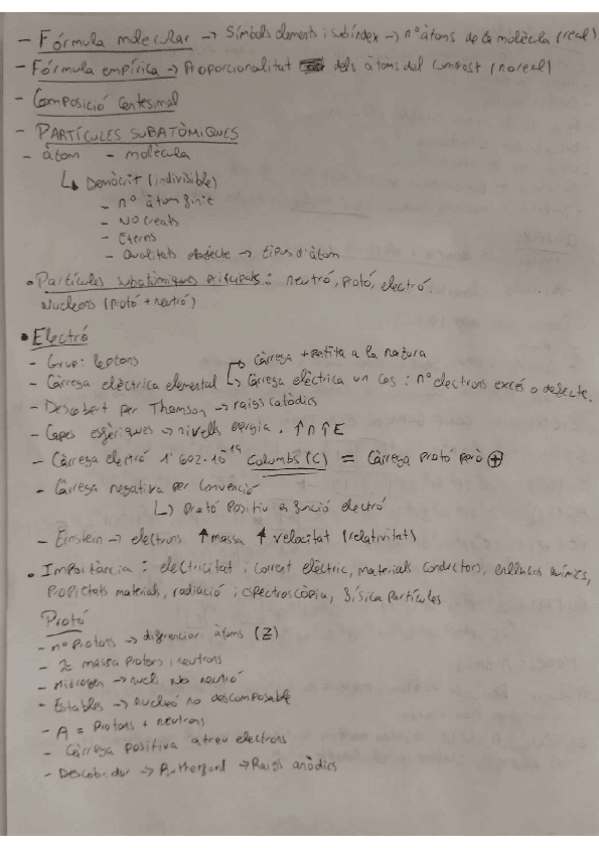 - Fórmula molecular → Símbols elements i subíndex → nº àtoms de la molècula (real)
- Fórmula empírica → Proporcionalitat dels àtoms del compost (no real)
- Composició Centesimal
- PARTÍCULES SUBATÒMIQUES
- àtom - molècula
↳ Demòcrit (indivisible)
- nº àtom finit
- NO creats
- Eterns
- Qualitats objecte → tipus d'àtom
• Partícules subatòmiques principals: neutró, protó, electró.
Nucleons (protó + neutró)
• Electró
- Grup: leptons
- Càrrega elèctrica elemental → Càrrega + petita a la natura
↳ Càrrega elèctrica un cos: nº electrons excés o defecte.
- Descobert per Thomson → raigs catòdics
- Capes esfèriques → nivells energia. ↑n ↑E
- Càrrega electró 1'602·10⁻¹⁹ Columbs (C) = Càrrega protó però ⊕
- Càrrega negativa per convenció
↳ protó positiu en funció electró
- Einstein → electrons ↑massa ↑ velocitat (relativitat)
• Importància: electricitat i corrent elèctric, materials conductors, enllaços químics,
propietats materials, radiació i espectroscòpia, física partícules
Protó
- nº protons → diferenciar àtoms (Z)
- ≈ massa protons i neutrons
- Hidrogen → nucli No neutró
- Estables → nucleó no descomposable
- A = Protons + neutrons
- Càrrega positiva atreu electrons
- Descobridor → Rutherford → Raigs anòdics